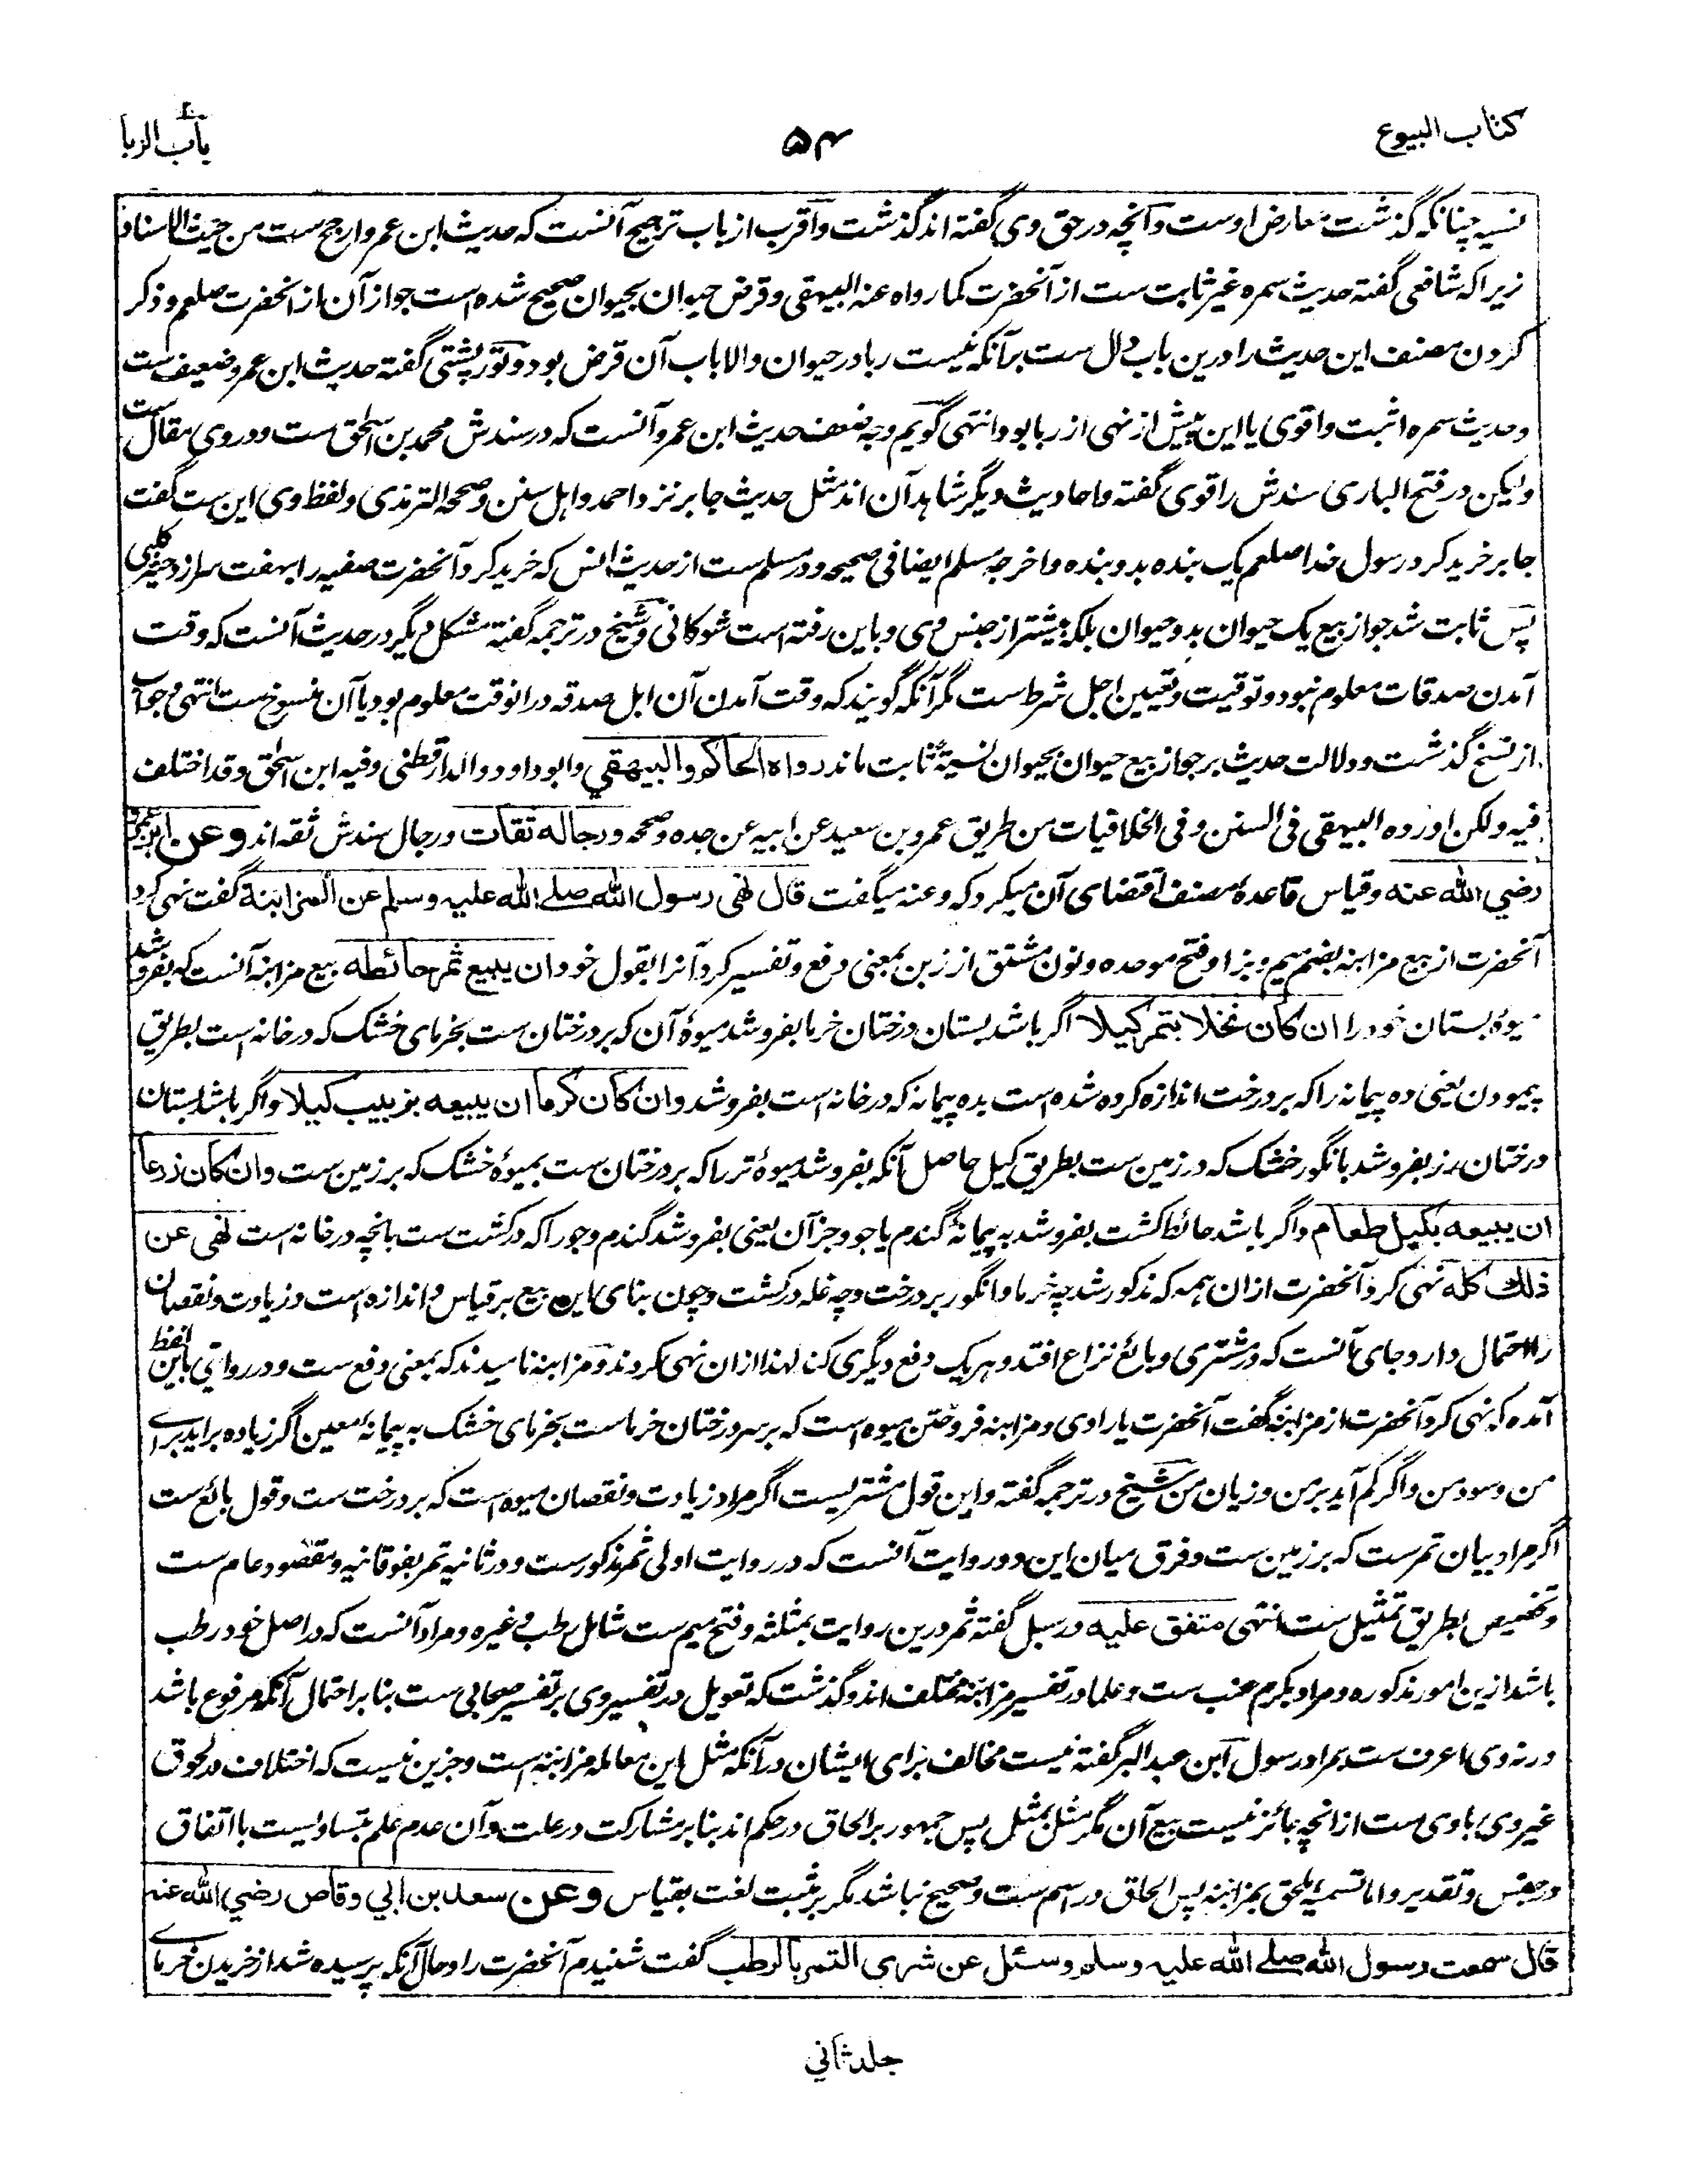 کتاب البیوع
۵۴
باب الربا
نسیه چنانکه گذشت معارض اوست و آنچه در حق وی گفته اند گذشت و اقرب از باب ترجیح آنست که حدیث ابن عمرو ارجح ست من حیث الاسناد
زیرا که شافعی گفته حدیث سمره غیر ثابت ست از آنحضرت کما رواه عنه البیهقی و قرض حیوان بحیوان صحیح شده است جواز آن از آنحضرت صلعم و ذکر
کردن مصنف این حدیث را درین باب دال ست بر آنکه نیست ربا در حیوان والا باب آن قرض بود و تورپشتی گفته حدیث ابن عمرو ضعیف ست
و حدیث سمره اثبت و اقوی یا این پیش از نهی از ربا بود انتهی گویم وجه ضعف حدیث ابن عمرو آنست که در سندش محمد بن اسحٰق ست و در وی مقال ست
ولیکن در فتح الباری سندش را قوی گفته و احادیث دیگر شاهد آن اند مثل حدیث جابر نزد احمد و اهل سنن و صححه الترمذی و لفظ وی این ست گفت
جابر خرید کرد رسول خدا صلعم یک بنده بدو بنده و اخرجه مسلم ایضا فی صحیحه و در مسلم ست از حدیث انس که خرید کرد آنحضرت صفیه را بهفت سر از دحیه کلبی
پس ثابت شد جواز بیع یک حیوان بدو حیوان بلکه بیشتر از جنس وی و باین رفته است شوکانی و شیخ در ترجمه گفته مشکل دیگر در حدیث آنست که وقت
آمدن صدقات معلوم نبود و توقیت و تعیین اجل شرط ست مگر آنکه گویند که وقت آمدن آن ابل صدقه در انوقت معلوم بود یا آن منسوخ ست انتهی و جواب
از نسخ گذشت و دلالت حدیث بر جواز بیع حیوان بحیوان نسیئة ثابت ماند رواه الحاکم والبیهقي وابوداود والدارقطنی وفیه ابن اسحٰق وقد اختلف
فیه ولکن اورده البیهقی فی السنن وفی الخلافیات من طریق عمرو بن سعید عن ابیه عن جده وصححه ورجاله ثقات و رجال سندش ثقه اند وعن ابن عمر
رضي الله عنه و قیاس قاعدهٔ مصنف اقتضای آن میکرد که وعنه میگفت قال نهی رسول الله صلے الله علیه وسلم عن المزابنة گفت نهی کرد
آنحضرت از بیع مزابنه بضم میم و بزا و فتح موحده و نون مشتق از زبن بمعنی دفع و تفسیر کرد آنرا بقول خود ان یبیع ثمر حائطه بیع مزابنه آنست که بفروشد
میوهٔ بستان خود را ان کان نخلا بتمر کیلا اگر باشد بستان درختان خرما بفروشد میوهٔ آن که بر درختان ست بخرمای خشک که در خانه است بطریق
پیمودن یعنی ده پیمانه را که بر درخت اندازه کرده شده است بده پیمانه که در خانه است بفروشد وان کان کرما ان یبیعه بزبیب کیلا واگر باشد بستان
درختان رز بفروشد بانگور خشک که در زمین ست بطریق کیل حاصل آنکه بفروشد میوهٔ تر را که بر درختان ست بمیوهٔ خشک که بر زمین ست وان کان زرعا
ان یبیعه بکیل طعام واگر باشد حائط کشت بفروشد به پیمانهٔ گندم یا جو و جز آن یعنی بفروشد گندم و جو را که در کشت ست بانچه در خانه است نهی عن
ذلك کله نهی کرد آنحضرت ازان همه که مذکور شد چه خرما و انگور بر درخت و چه غله در کشت و چون بنای این بیع بر قیاس و اندازه است و زیادت و نقصان
را احتمال دارد و جای آنست که در مشتری و بائع نزاع افتد و هر یک دفع دیگری کند لهذا ازان نهی کردند و مزابنه نامیدند که بمعنی دفع ست و در روایتی باین لفظ
آمده که نهی کرد آنحضرت از مزابنه گفت آنحضرت یا راوی و مزابنه فروختن میوه است که بر سر درختان خرماست بخرمای خشک به پیمانهٔ معین اگر زیاده برآید برای
من و سود من و اگر کم آید بر من و زیان من شیخ در ترجمه گفته و این قول مشتریست اگر مراد زیادت و نقصان میوه است که بر درخت ست و قول بائع ست
اگر مراد بیان تمر ست که بر زمین ست و فرق میان این دو روایت آنست که در روایت اولی ثمر مذکورست و در ثانیه تمر بفوقانیه و مقصود عام ست
و تخصیص بطریق تمثیل ست انتهی متفق علیه در سبل گفته ثمر درین روایت بمثلثه و فتح میم ست شامل رطب و غیره و مراد آنست که در اصل خود رطب
باشد ازین امور مذکوره و مراد بکرم عنب ست و علما در تفسیر مزابنه مختلف اند و گذشت که تعویل در تفسیر وی بر تفسیر صحابی ست بنا بر احتمال آنکه مرفوع باشد
ورنه وی اعرف ست بمراد رسول ابن عبد البر گفته نیست مخالف برای ایشان در آنکه مثل این معامله مزابنه است و جزین نیست که اختلاف در لحوق
غیر وی باوی ست از انچه جائز نیست بیع آن مگر مثل بمثل پس جمهور بر الحاق در حکم اند بنا بر مشارکت در علت و آن عدم علم بتساویست با اتفاق
در جنس و تقدیر و اما تسمیهٔ ملحق بمزابنه پس الحاق در اسم ست و صحیح نباشد مگر بر ثبت لغت بقیاس وعن سعد بن ابي وقاص رضي الله عنه
قال سمعت رسول الله صلے الله علیه وسلم وسئل عن شری التمر بالرطب گفت شنیدم آنحضرت را و حال آنکه پرسیده شد از خریدن خرمای
جلد ثاني